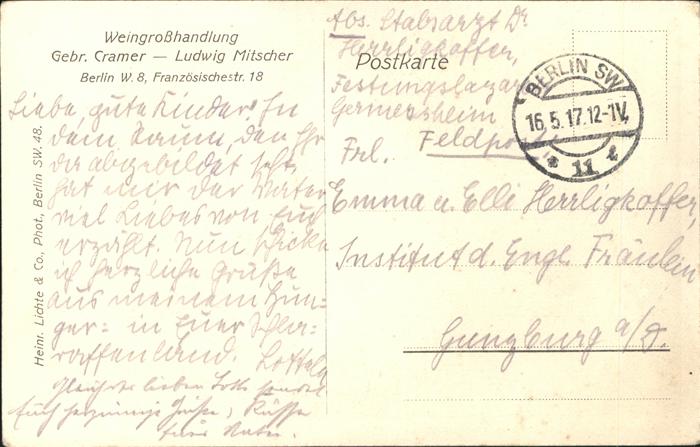 Weingroßhandlung
Gebr. Cramer — Ludwig Mitscher
Berlin W. 8, Französischestr. 18
Heinr. Lichte & Co., Phot., Berlin SW. 48.
Liebe, gute Kinder! In
dem Raum, den Ihr
da abgebildet seht,
hat mir der Vater
viel Liebes von Euch
erzählt. Nun schicke
ich herzliche Grüße
aus meinem Hun-
ger- in Euer Schla-
raffenland.
lieben
Euch herzinnige Grüße, Küsse
Euer Vater.
Postkarte
Abs. Stabsarzt Dr
Herrligkoffer,
Festungslazar
Germersheim
Feldpo
BERLIN SW
16.5.17.12-1V.
* 11 t
Frl.
Emma u. Elli Herrligkoffer,
Institut d. Engl. Fräulein
Gunzburg a/D.